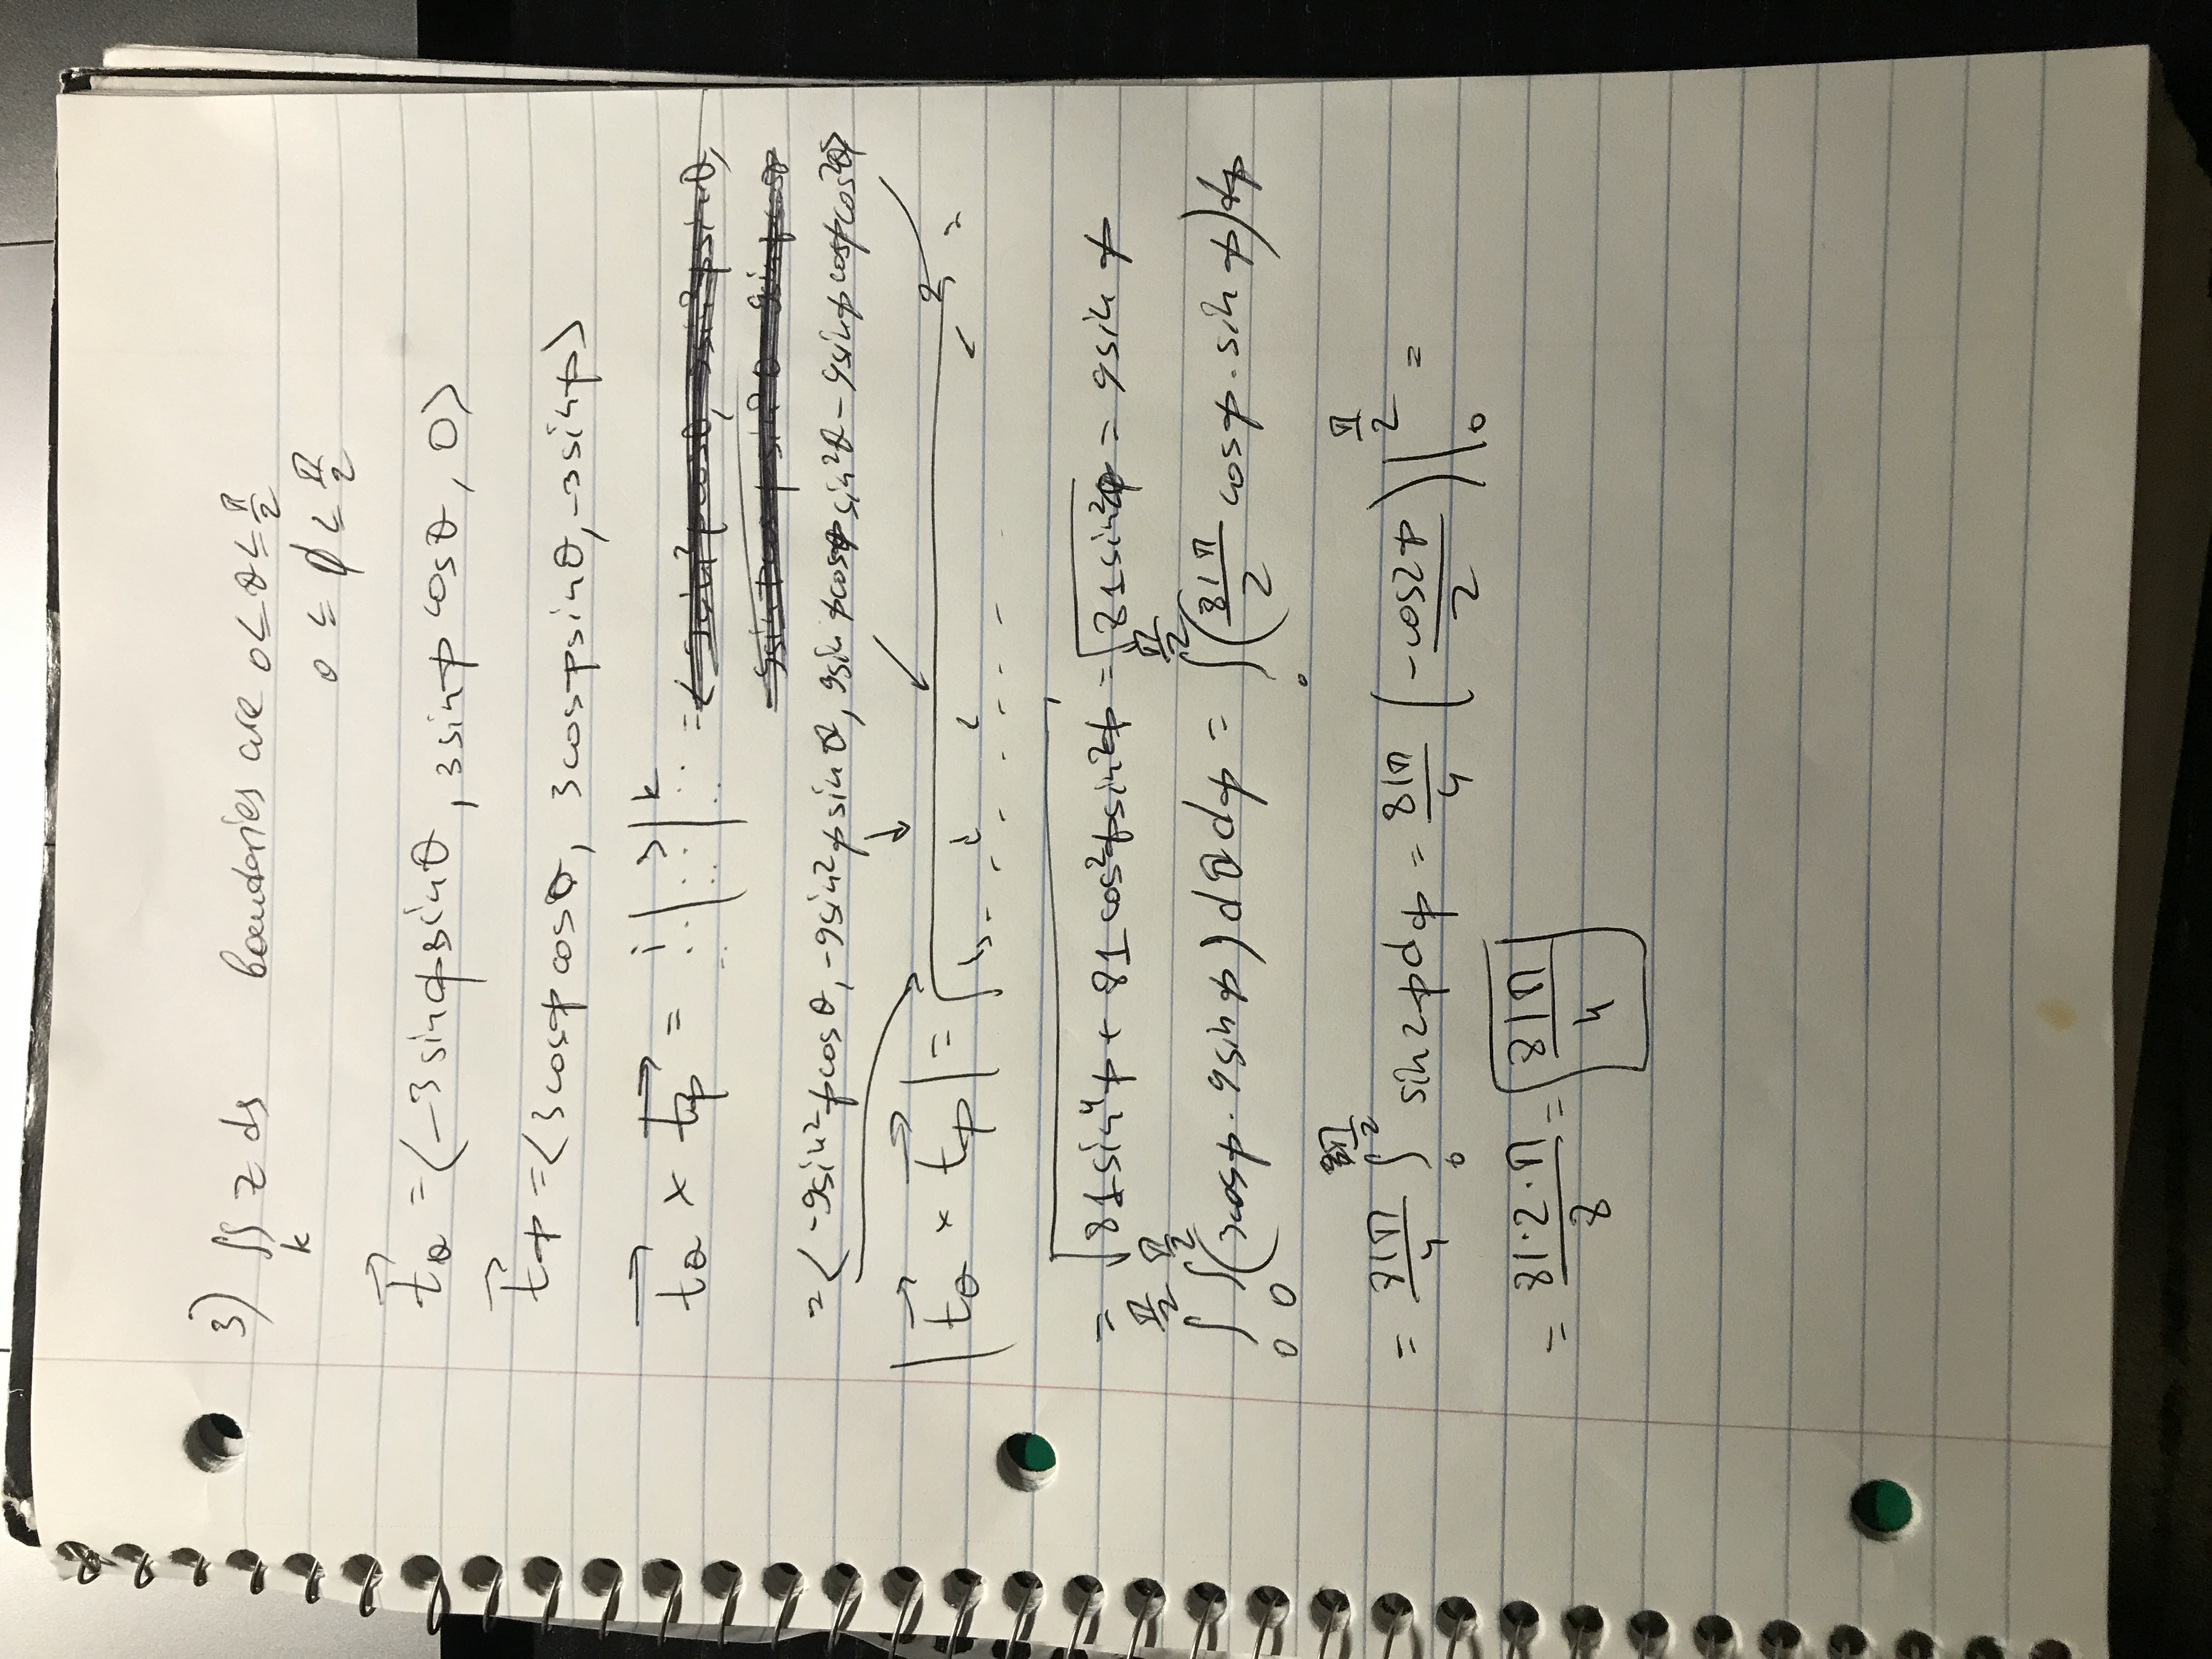 3) ∬ z ds boundaries are 0 ≤ θ ≤ π/2
k
0 ≤ φ ≤ π/2
t⃗θ = ⟨-3sinφsinθ, 3sinφcosθ, 0⟩
t⃗φ = ⟨3cosφcosθ, 3cosφsinθ, -3sinφ⟩
t⃗θ × t⃗φ = i | j | k =
= ⟨-9sin²φcosθ, -9sin²φsinθ, 9sinφcosφsin²θ - 9sinφcosφcos²θ⟩
|t⃗θ × t⃗φ| = √ =
= √(81sin⁴φ + 81cos²φsin²φ) = √(81sin²φ) = 9sinφ
∫₀^(π/2) ∫₀^(π/2) (3cosφ · 9sinφ) dθdφ = ∫₀^(π/2) (81π/2 cosφ · sinφ) dφ
= 81π/4 ∫₀^(π/2) sin2φdφ = 81π/4 (-cos2φ/2)|₀^(π/2) =
= 81·2·π/8 = 81π/4